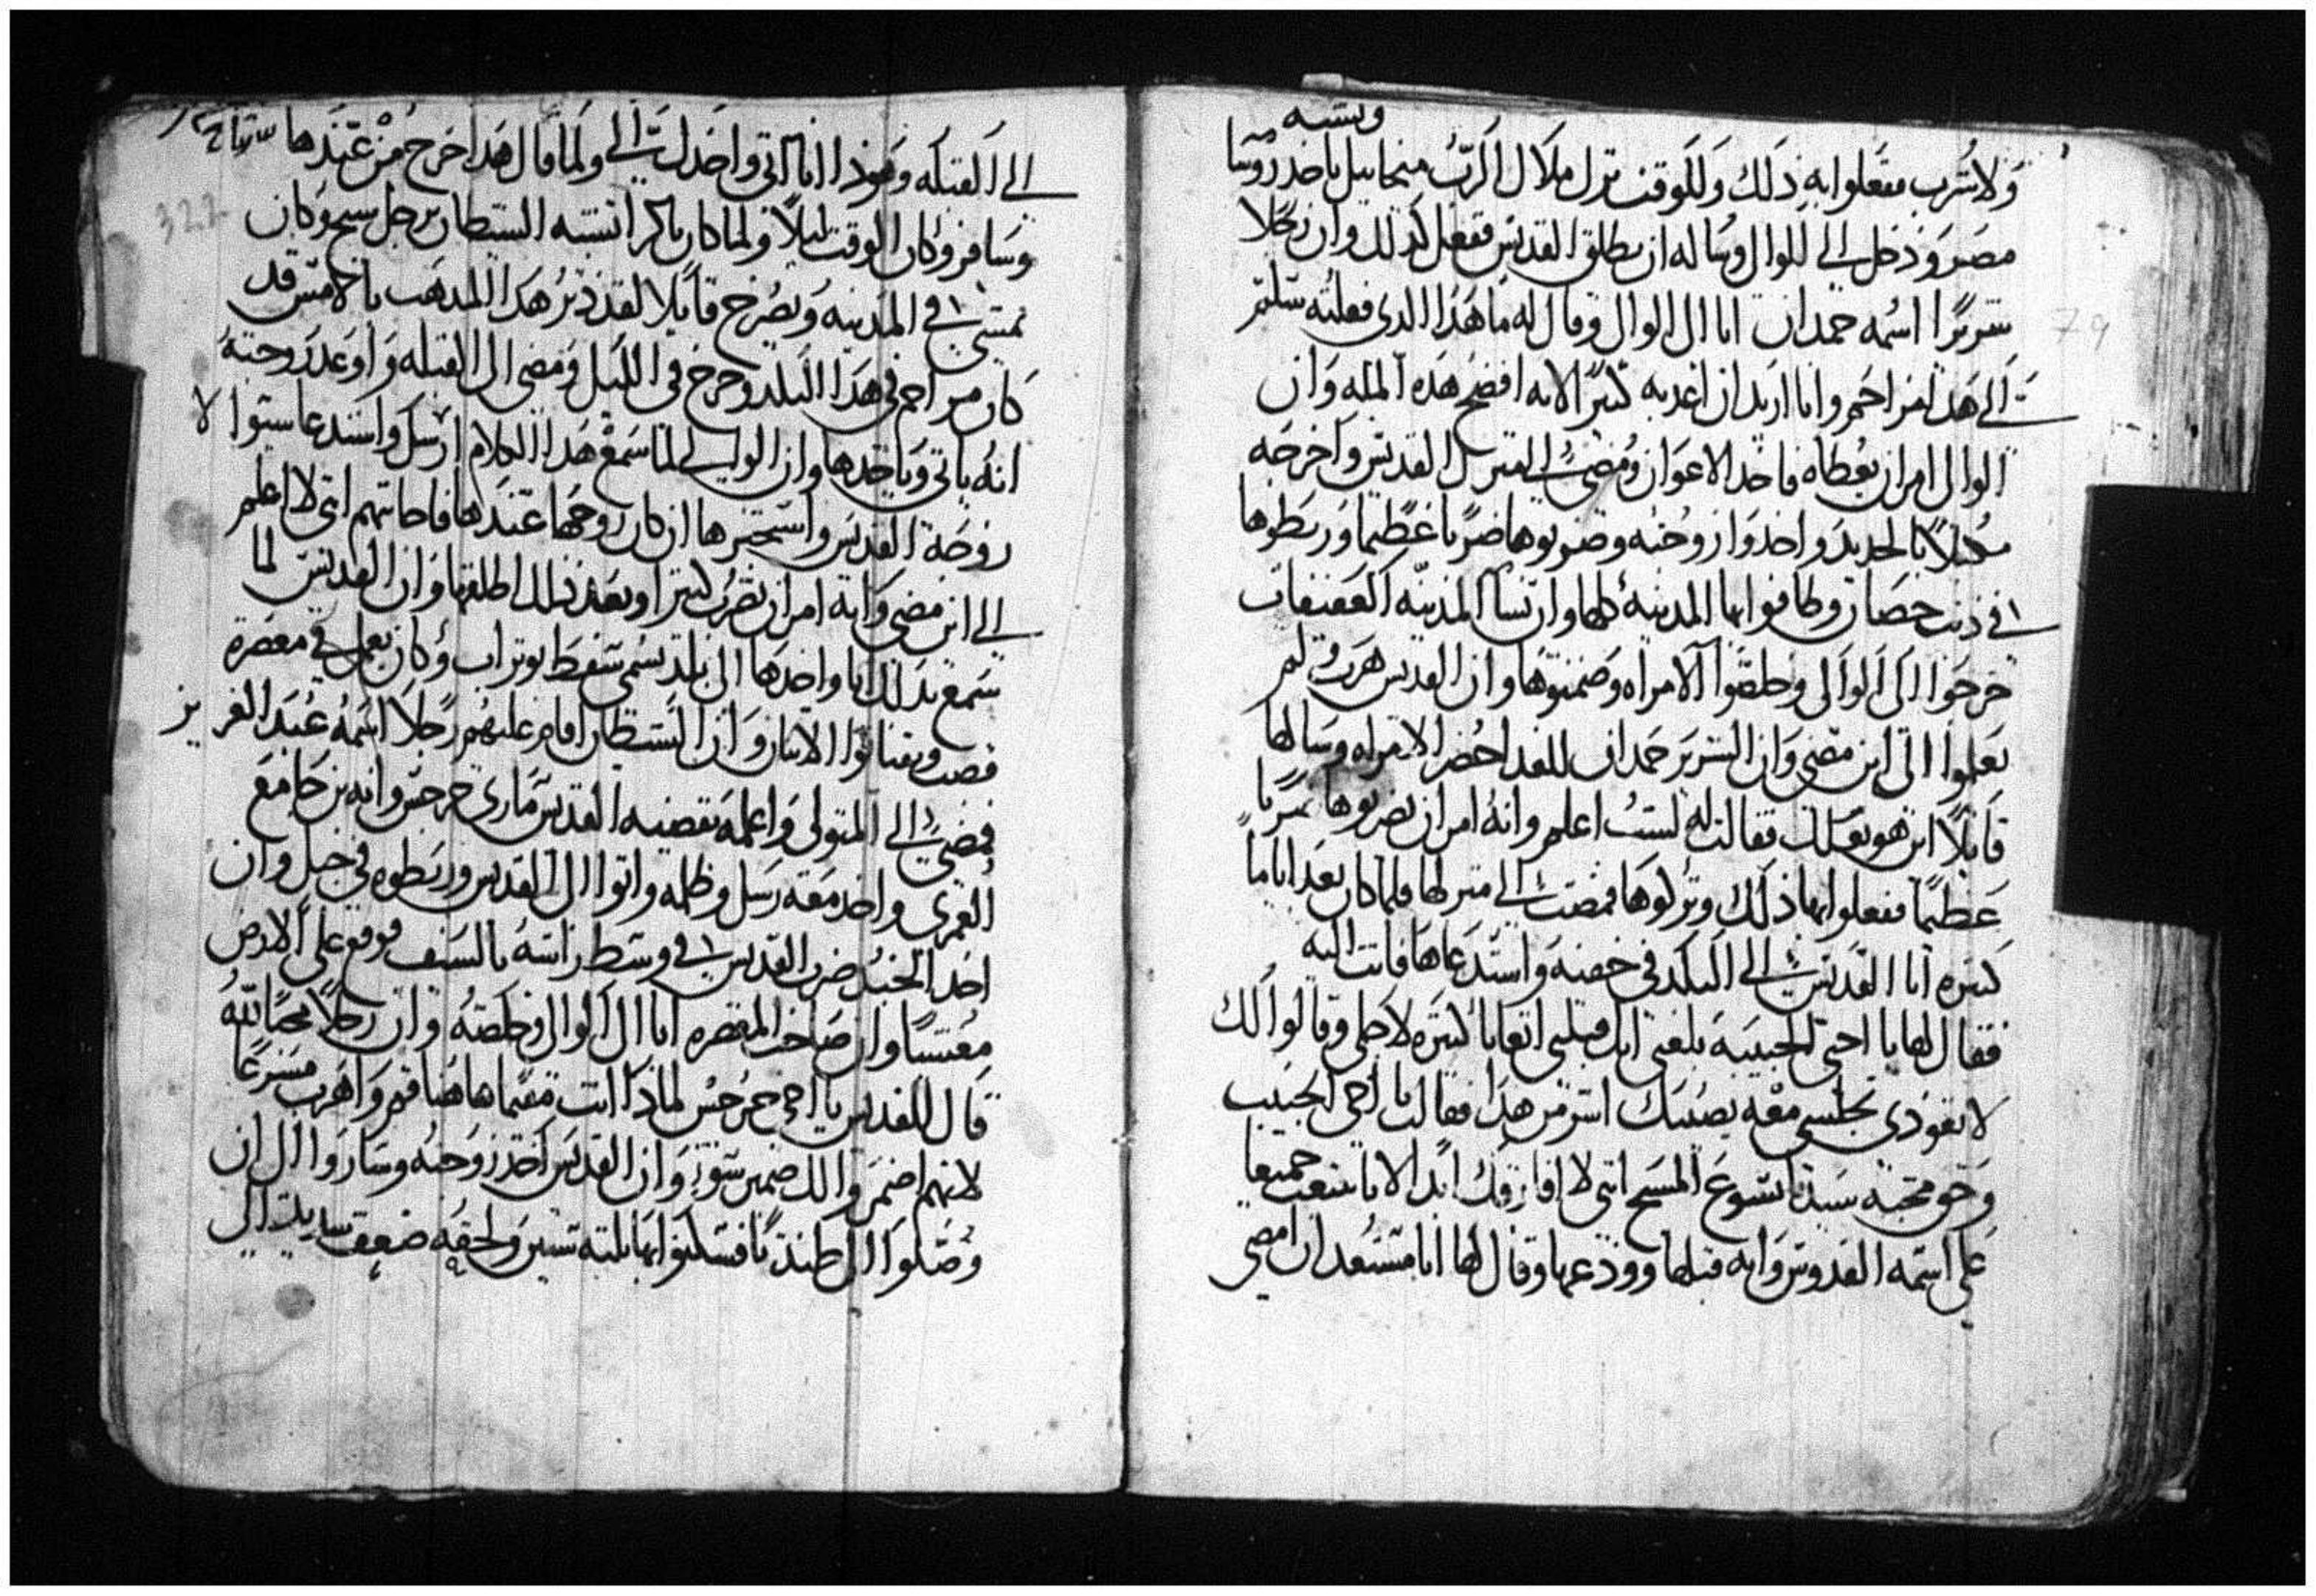 ويشبه
ولا شرب ففعلوا به ذلك وللوقت نزل ملاك الرب ميخاييل باحد روسا
مصر ودخل الي الوال وساله ان يطلق القديس ففعل كدلك وان رجلا
شريرا اسمه حمدان اتا ال الوال وقال له ما هدا الدى فعلته سلمتم
الي هدا مزاحم وانا اريد ان اعدبه كثيرا لانه افضح هده المله وان
الوال امر ان يعطاه فاخد الاعوان ومضي الي منزل القديس واخرجه
مكبلا بالحديد واخدوا زوجته وضربوها ضربا عظيما وربطوها
في دنب حصان وطافوا بها المدينه كلها وان نسا المدينه العفيفات
خرجوا الى الوالى وخلصوا الامراه وضمنوها وان القديس هرب ولم
يعلموا الى اين مضي وان الشرير حمدان للغد احضر الامراه وسالها
قايلا اين هو بعلك فقالت له لست اعلم وانه امر ان يضربوها ضربا
عظيما ففعلوا بها ذلك وتركوها فمضت الي منزلها فلما كان بعد اياما
كثيره اتا القديس الي البلد في خفيه واستدعاها فاتت اليه
فقال لها يا اختى الحبيبه بلغنى انك قبلتى اتعابا كثيره لاجلى وقالوا لك
لا تعودى تجلسى معه يصيبك اشر من هدا فقالت يا اخى الحبيب
وحق محبه سيدنا يسوع المسيح اننى لا افارقك ابدا الا ان نتعب جميعا
على اسمه القدوس وانه قبلها وودعها وقال لها انا مستعد ان امضي
الي القبله وهوذا انا اتى واخدك الي ولما قال هدا خرج من عندها
وسافر وكان الوقت ليلا ولما كان باكر اتشبه الشيطان برجل شيخ وكان
يمشي في المدينه ويصرخ قايلا لقد دثر هدا المدهب بالامس قد
كان مزاحم في هدا البلد وخرج في الليل ومضى الى القبله واوعد زوجته
انه ياتى وياخدها وان الوالي لما سمع هدا الكلام ارسل واستدعا ستوا لا
زوجة القديس واستخبرها ان كان زوجها عندها فاجابتهم انى لا اعلم
الي اين مضي وانه امر ان تضرب كثيرا وبعد ذلك اطلقها وان القديس لما
سمع بدلك اتا واخدها الى بلد تسمى شفط بوتراب وكان يعمل في معصرة
قصب ويقتاتوا الاتنان وان الشيطان اقام عليهم رجلا اسمه عبد العزيز
فمضي الي المتولى واعلمه بقضيه القديس مارى جرجس وانه نزح جامع
العمرى واخد معه رسل وظلمه واتوا الى القديس وربطوه في حبل وان
احد الجند ضرب القديس في وسط راسه بالسيف فوقع على الارض
مغشيا وان صاحب المعصره اتا الى الوال وخلصه وان رجلا محبا لله
قال للقديس يا اخي جرجس لمادا انت مقيما هاهنا قم واهرب مسرعا
لانهم اضمروا لك ضمير سوء وان القديس اخد زوجته وساروا الى ان
وصلوا الى طندتا فسكنوا بها ثلثه سنين ولحقه ضعف شديد الى